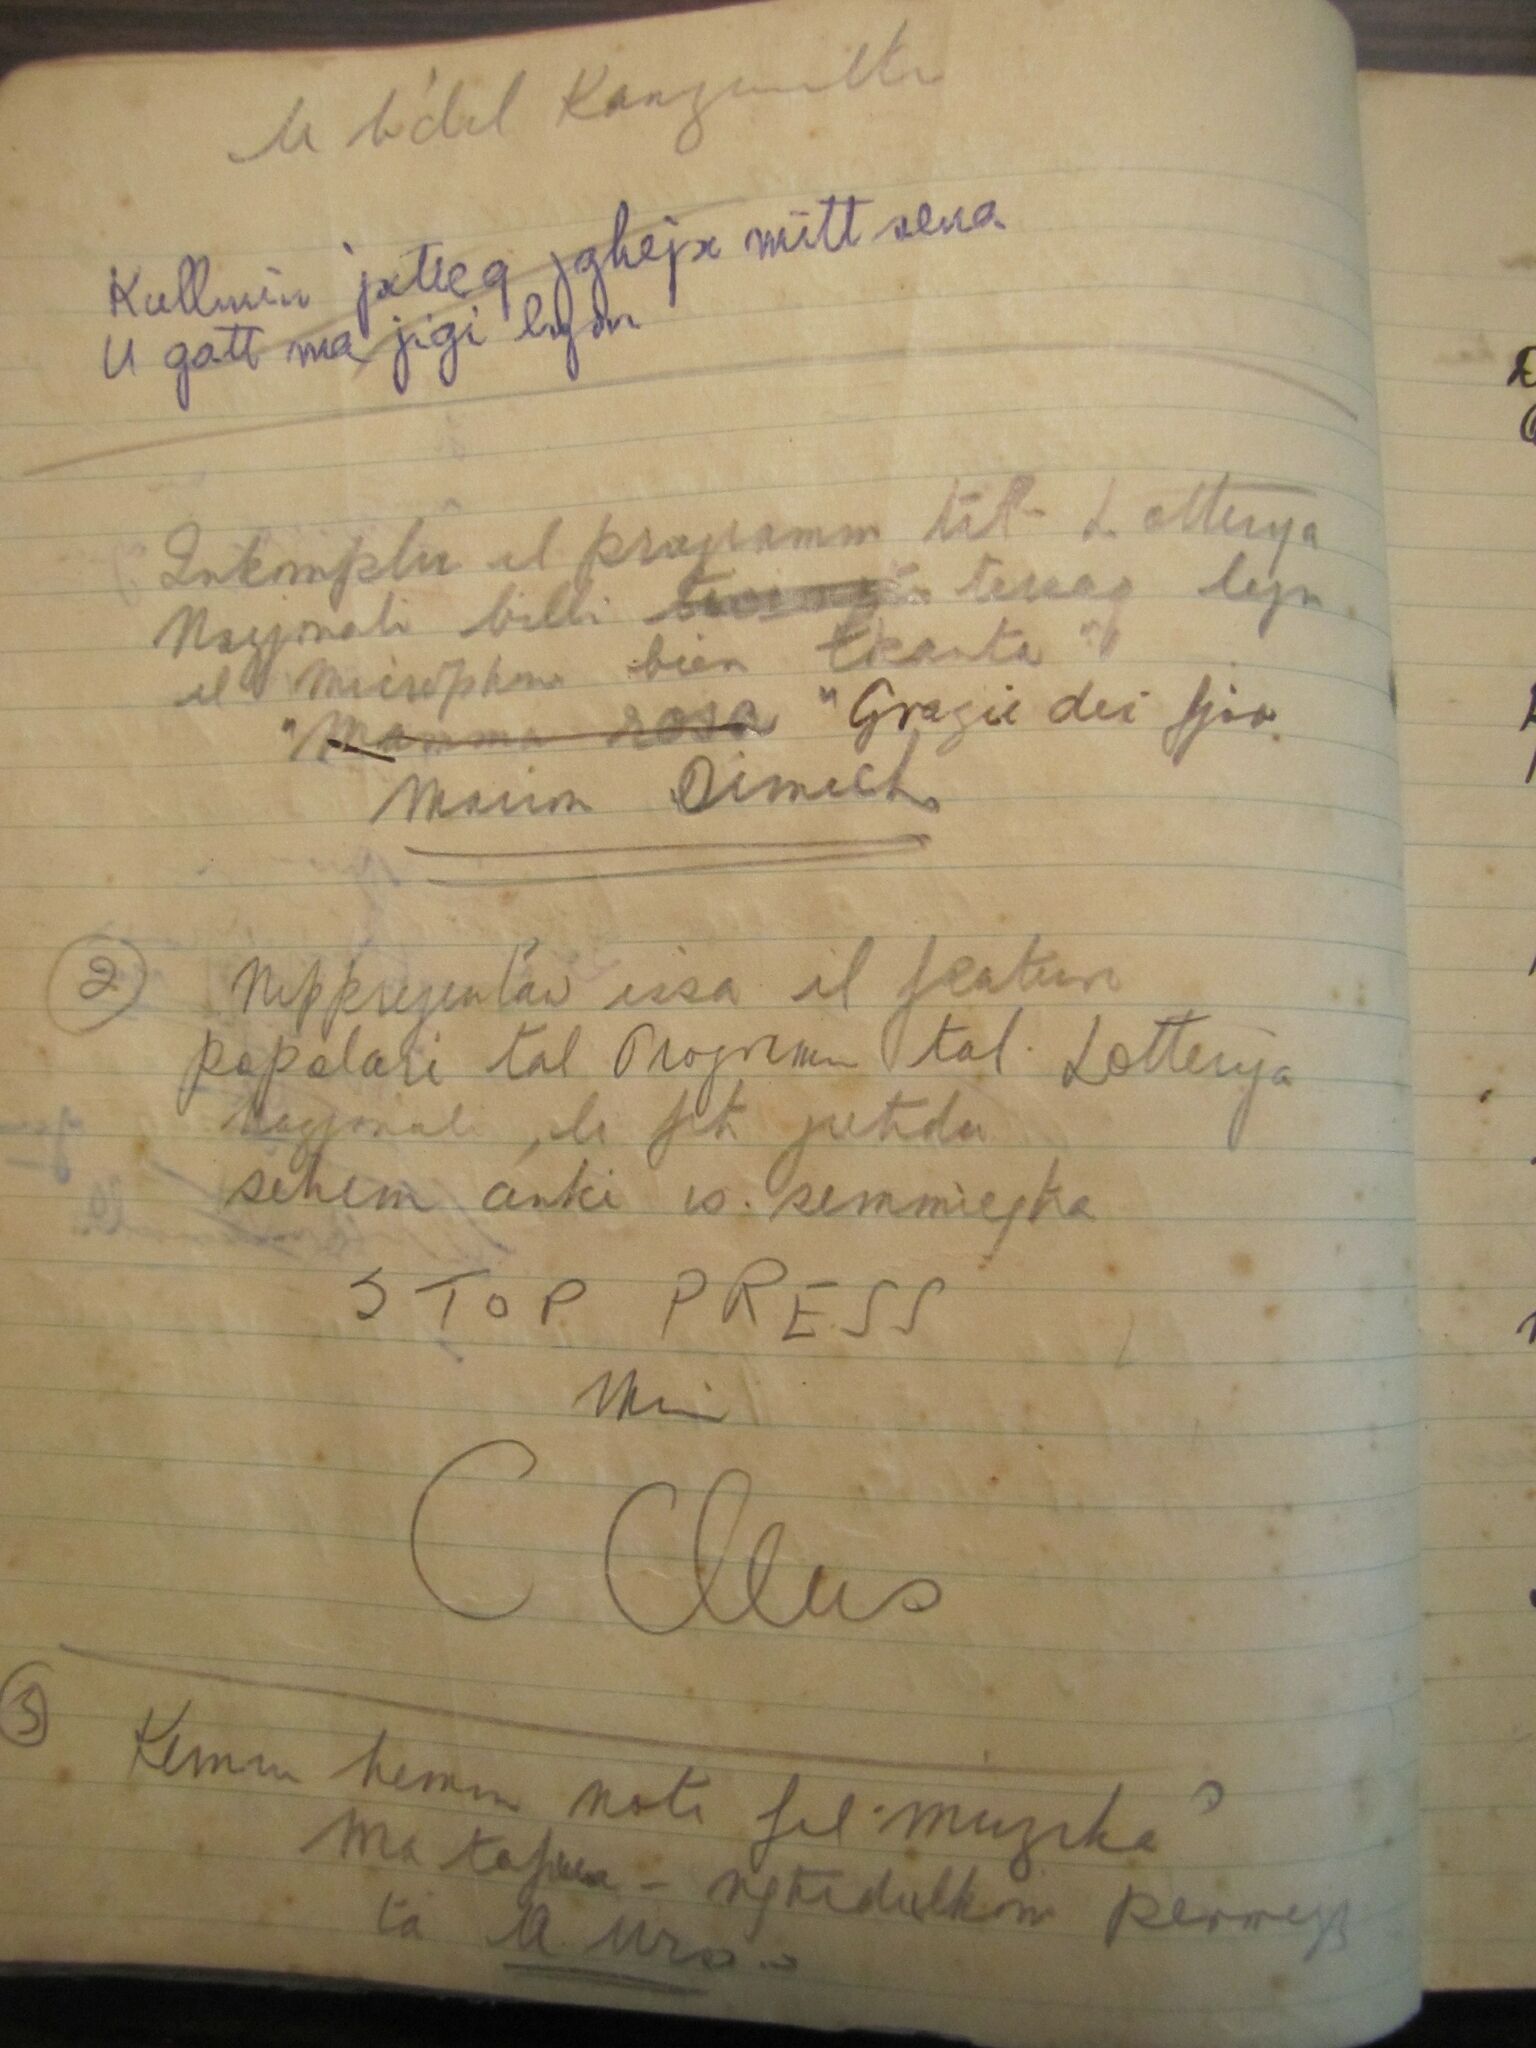 U b'dil Kanzunetta
Kullmin jixtieq jghejx mitt sena
U gatt ma jigi lura
Inkomplu il programm tal- Lotterija
Nazjonali billi tersaq lejn
il microphone biex tkanta
"Mamma rosa "Grazie dei fior
Marion Dimech
2 Nippresentaw issa il feature
popolari tal Programm tal. Lotterija
nazjonali, li fih jiehdu
sehem anki is. semmiegha
STOP PRESS
Minn
C Clews
3
Kemm hemm noti fil-muzika?
Ma tafux - nghidulkom permezz
ta